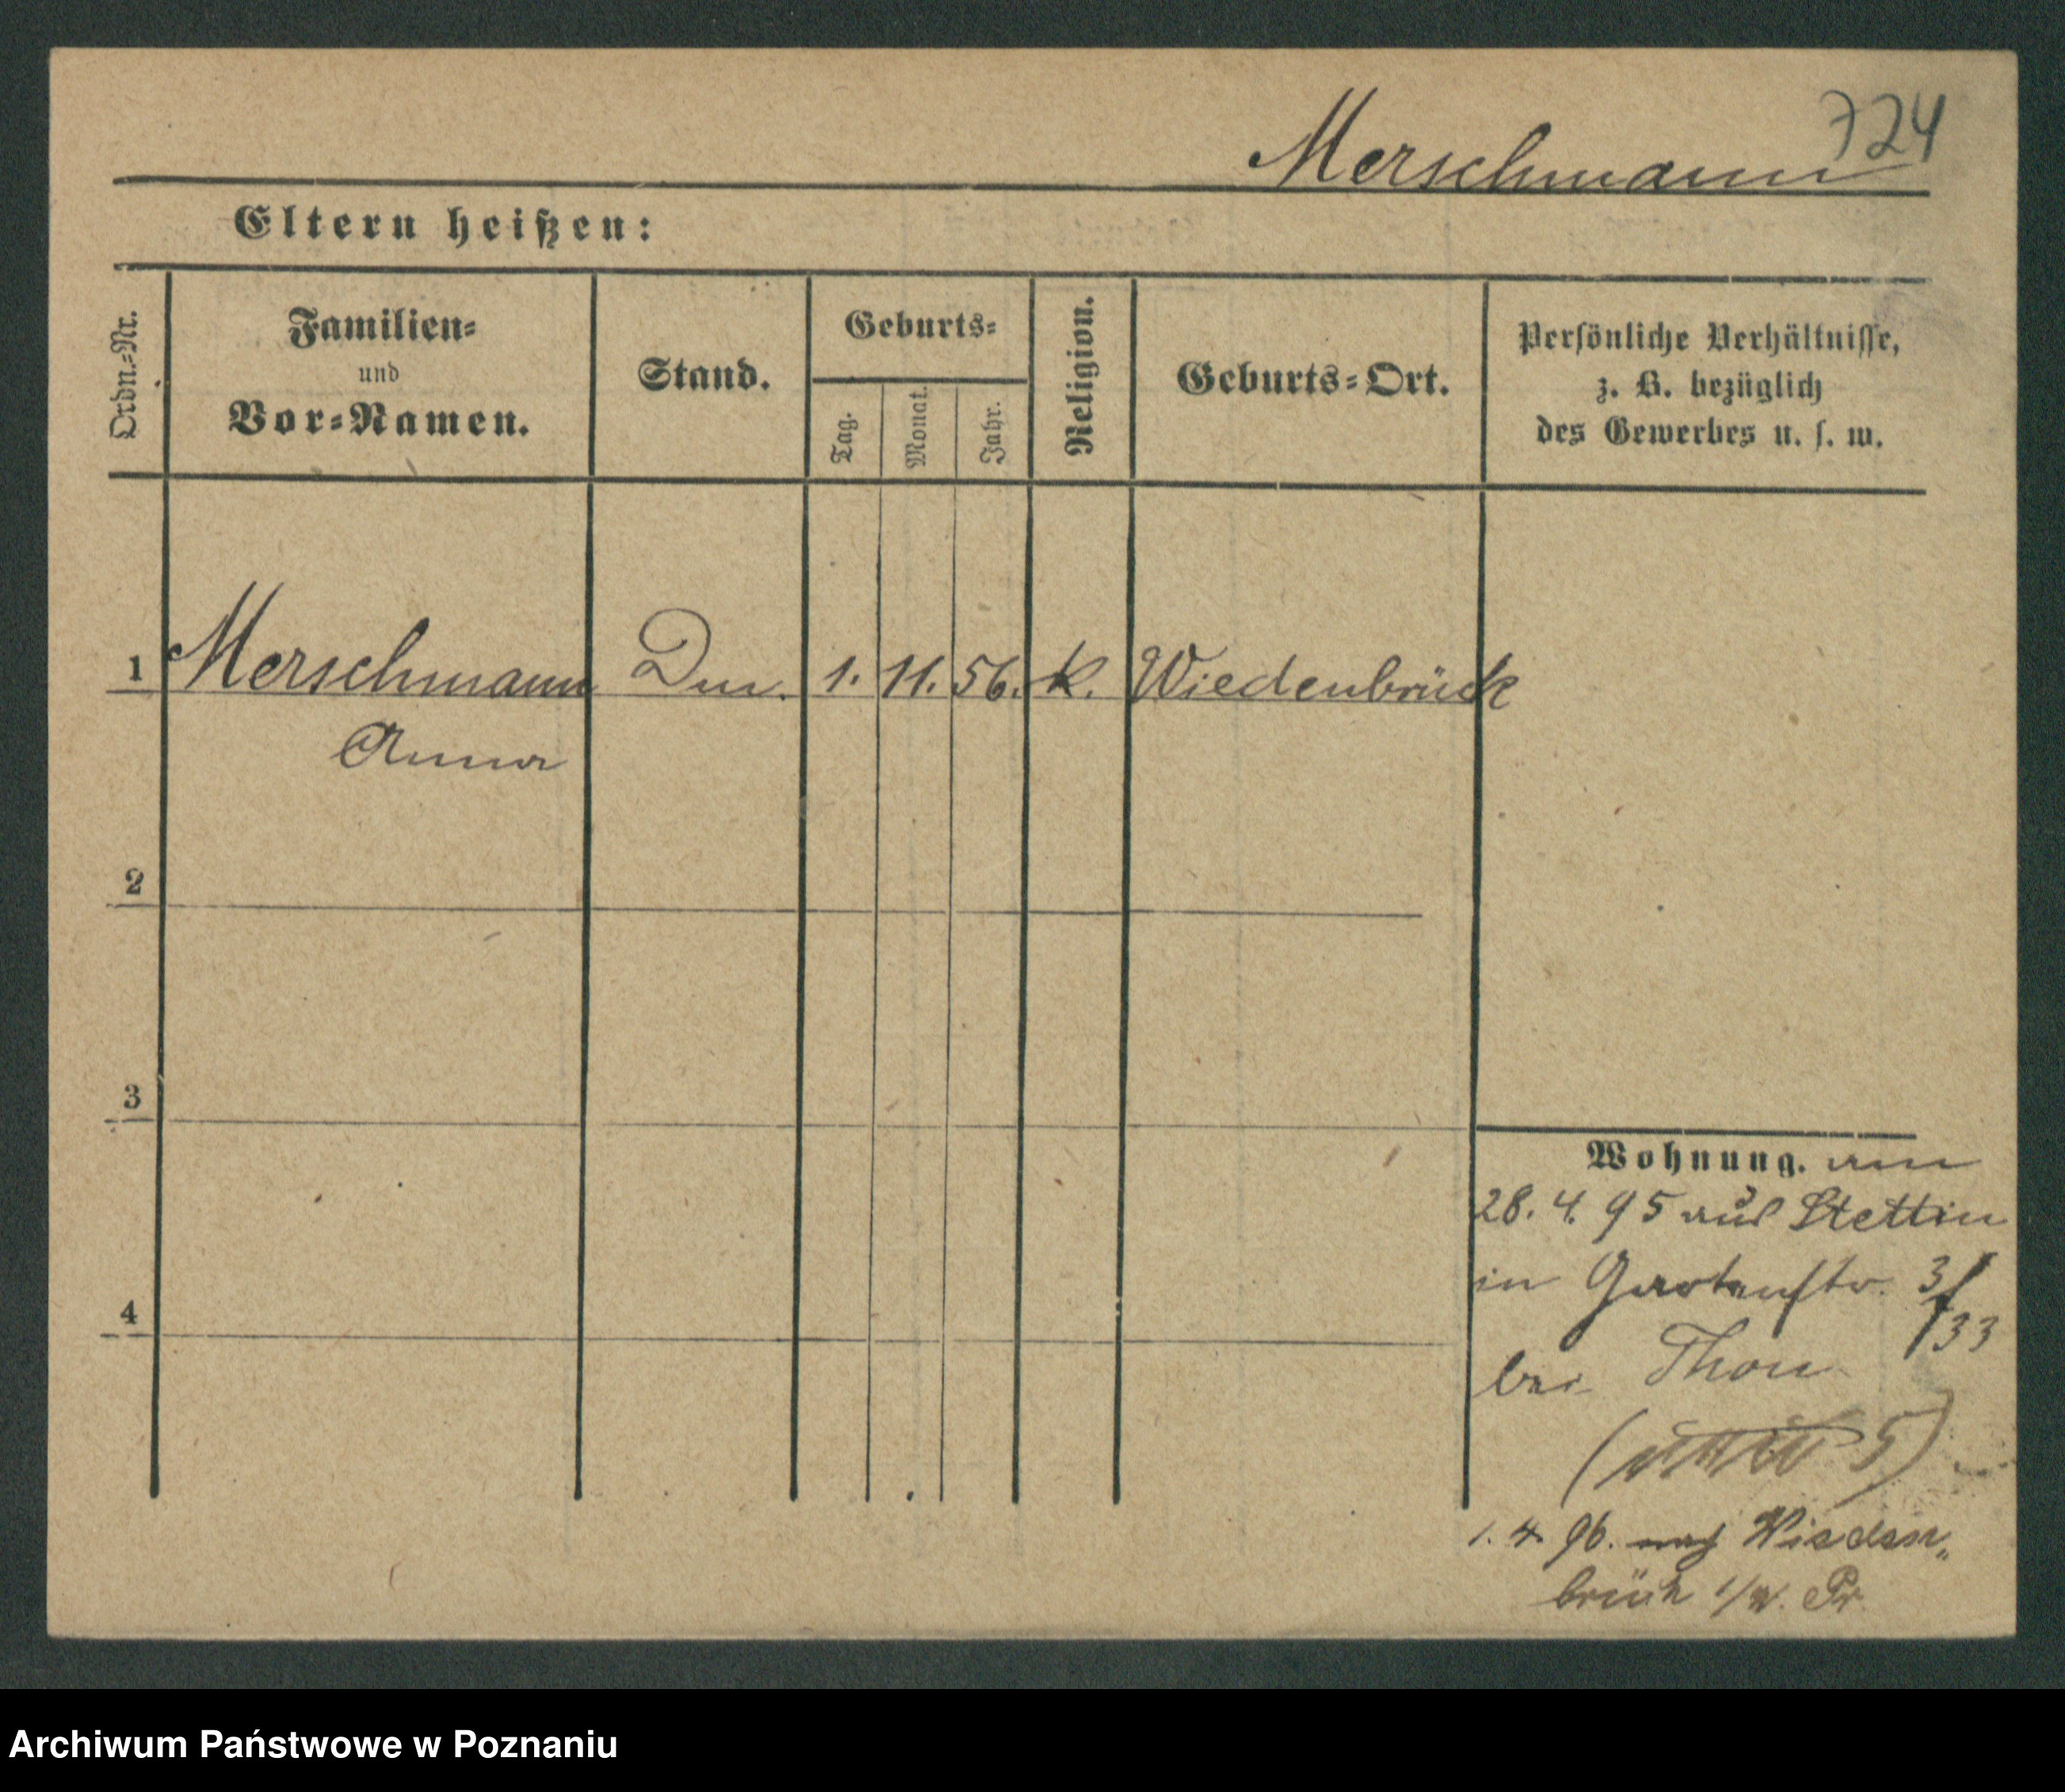 724
Merschmann
Eltern heißen:
Ordn.-Nr.
Familien-
und
Vor-Namen.
Stand.
Geburts-
Tag.
Monat.
Jahr.
Religion.
Geburts-Ort.
Persönliche Verhältnisse,
z. B. bezüglich
des Gewerbes u. s. w.
1 Merschmann 1. 11. 56. k. Wiedenbrück
Anna
2
3
4
Wohnung. am
28. 4. 95 aus Stettin
in Gartenstr. 3/
33
bei Thon
5)
1. 4. 96. nach Wieden„
brück Pr
Archiwum Państwowe w Poznaniu